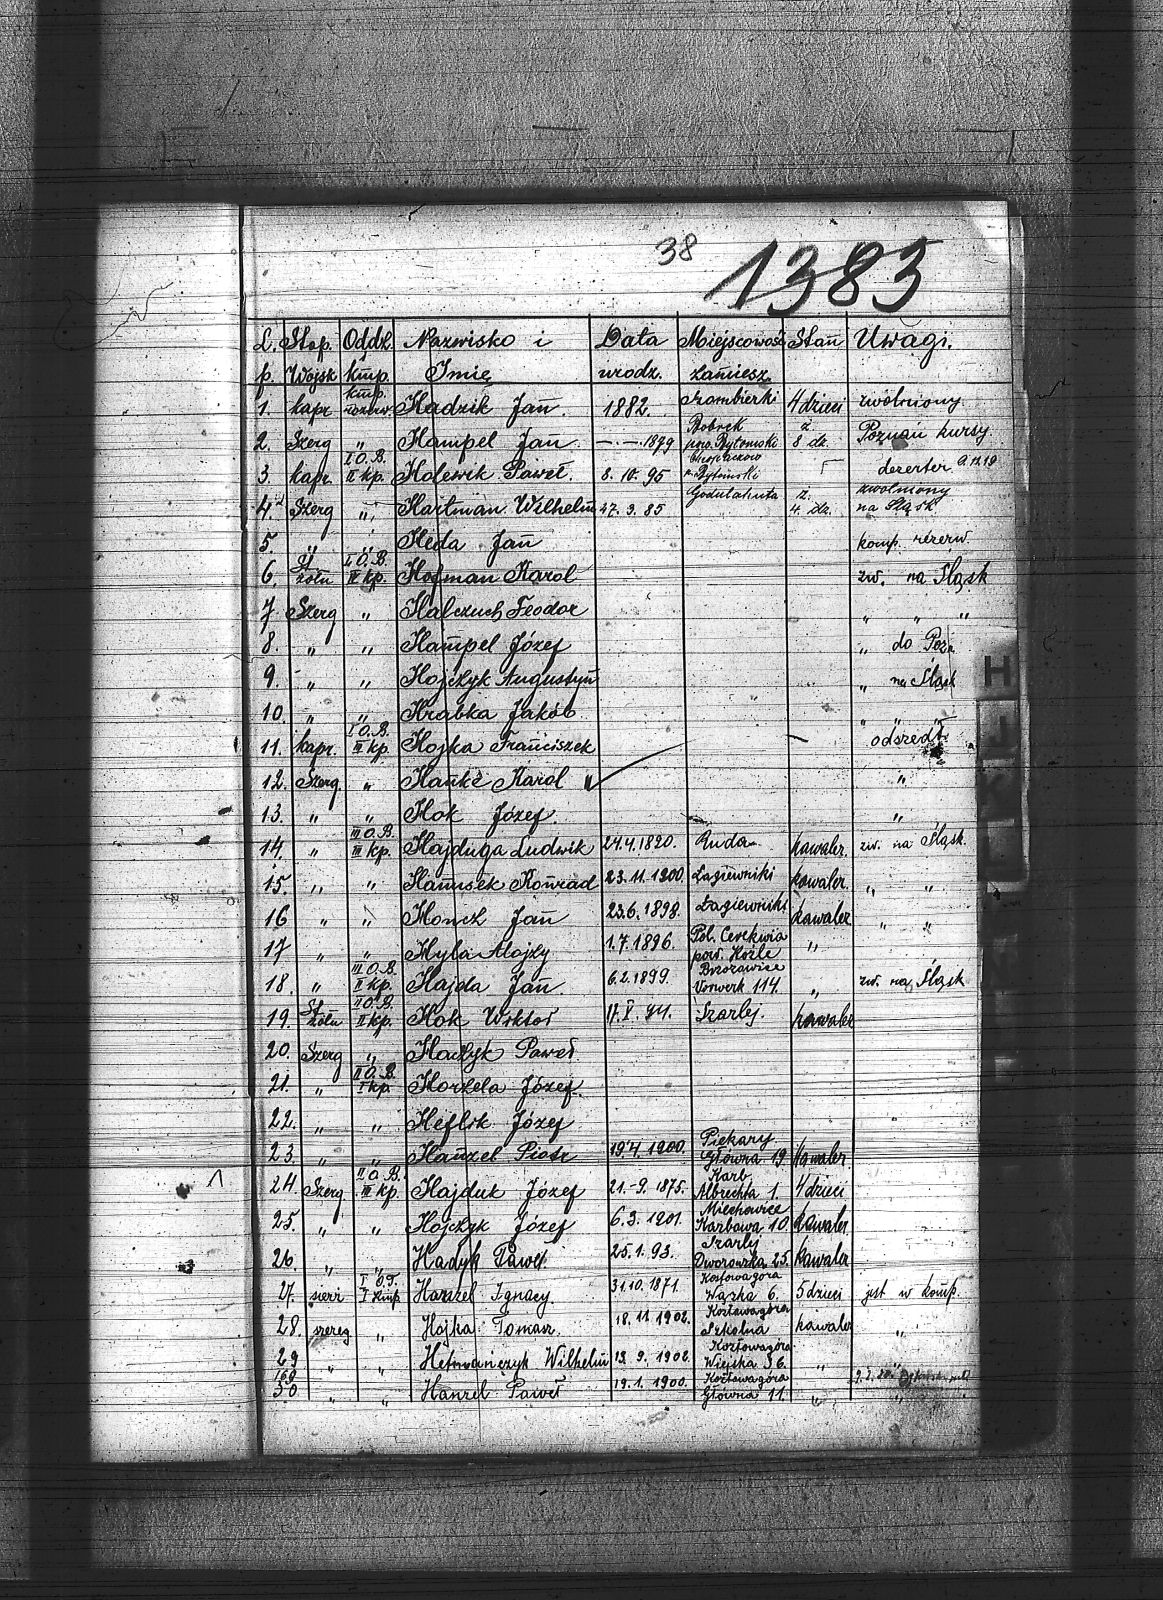 38
1383
L. Stop. Oddz. Nazwisko i Data Miejscowość Stan Uwagi.
p. Wojsk kmp. Imię urodz. zamiesz.
1. kapr kmp. rezerw. Hadzik Jan. 1882. 4 dzieci zwolniony
2. Szerg „ Hampel Jan —.—.1879 Bobrek pow. Bytomski ż. 8 dz. Poznań kursy
3. kapr. I O.B. II kp. Holewik Paweł. 8.10.95 dezerter
4. Szerg „ Hartman Wilhelm 27.3.85 Godulahuta ż. 4 dz. zwolniony na Śląsk
5. „ „ Heda Jan komp. rezerw.
6. St. żołn I O.B. Hofman Karol zw. na Śląsk
7 Szerg „ Halczuch Teodor „ „ „
8. „ „ Hampel Józef „ do Pozn.
9. „ „ Hojczyk Augustyn „ na Śląsk
10. „ „ Hrabka Jakób „ „ „
11. kapr. I O.B. III kp. Hojka Franciszek odszedł
12. Szerg „ Hanke Karol „
13. „ „ Hok Józef „
14. „ III O.B. III kp. Hajduga Ludwik 24.4.1820. Ruda kawaler. zw. na Śląsk.
15. „ „ Hanusek Konrad 23.11.1900. Łagiewniki kawaler. „ „
16 „ „ Honcz Jan 23.6.1898. Łagiewniki kawaler „ „
17 „ „ Hyla Alojzy 1.7.1896. Pol. Cerekwia pow. Koźle „
18. „ III O.B. II kp. Hajda Jan. 6.2.1899. Vorwerk 114. „ zw. na Śląsk
19. St. żołn II O.B. II kp. Hok Wiktor Szarlej. kawaler
20. Szerg „ Paweł
21. „ II O.B. I kp. Horzela Józef.
22. „ „ Heflik Józef
23. „ „ Hanzel Piotr 19.4.1900. Piekary Główna 19 kawaler
24. Szerg II O.B. III kp. Hajduk Józef 21.-9.1875. Karb Albrechta 1. 4 dzieci
25. „ „ Hojczyk Józef 6.3.1901. Miechowice Karbowa 10 kawaler
26. „ „ Hadyk Paweł 25.1.93. Szarlej Dworowska 25. kawaler
27. I kmp Ignacy 31.10.1871. Kozłowagóra Wąska 6. 5 dzieci jest w komp.
28. szereg „ Hojka Tomasz. 18.11.1902. Kozłowagóra Szkolna kawaler „
29 „ „ Hetmańczyk Wilhelm 13.9.1902. Kozłowagóra Wiejska 36. „ „
30 „ „ Hanzel Paweł 19.1.1900. Kozłowagóra Główna 11. „ „